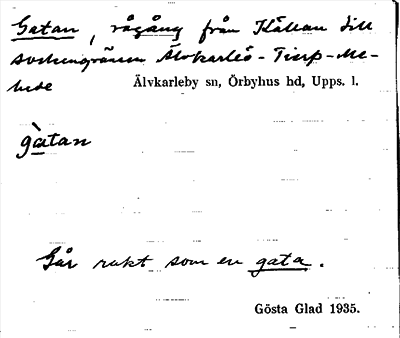 Gatan, rågång från Källan till
sockengränsen Älvkarleö - Tierp - Me-
hede
Älvkarleby sn, Örbyhus hd, Upps. l.
gàtan
Går rakt som en gata.
Gösta Glad 1935.